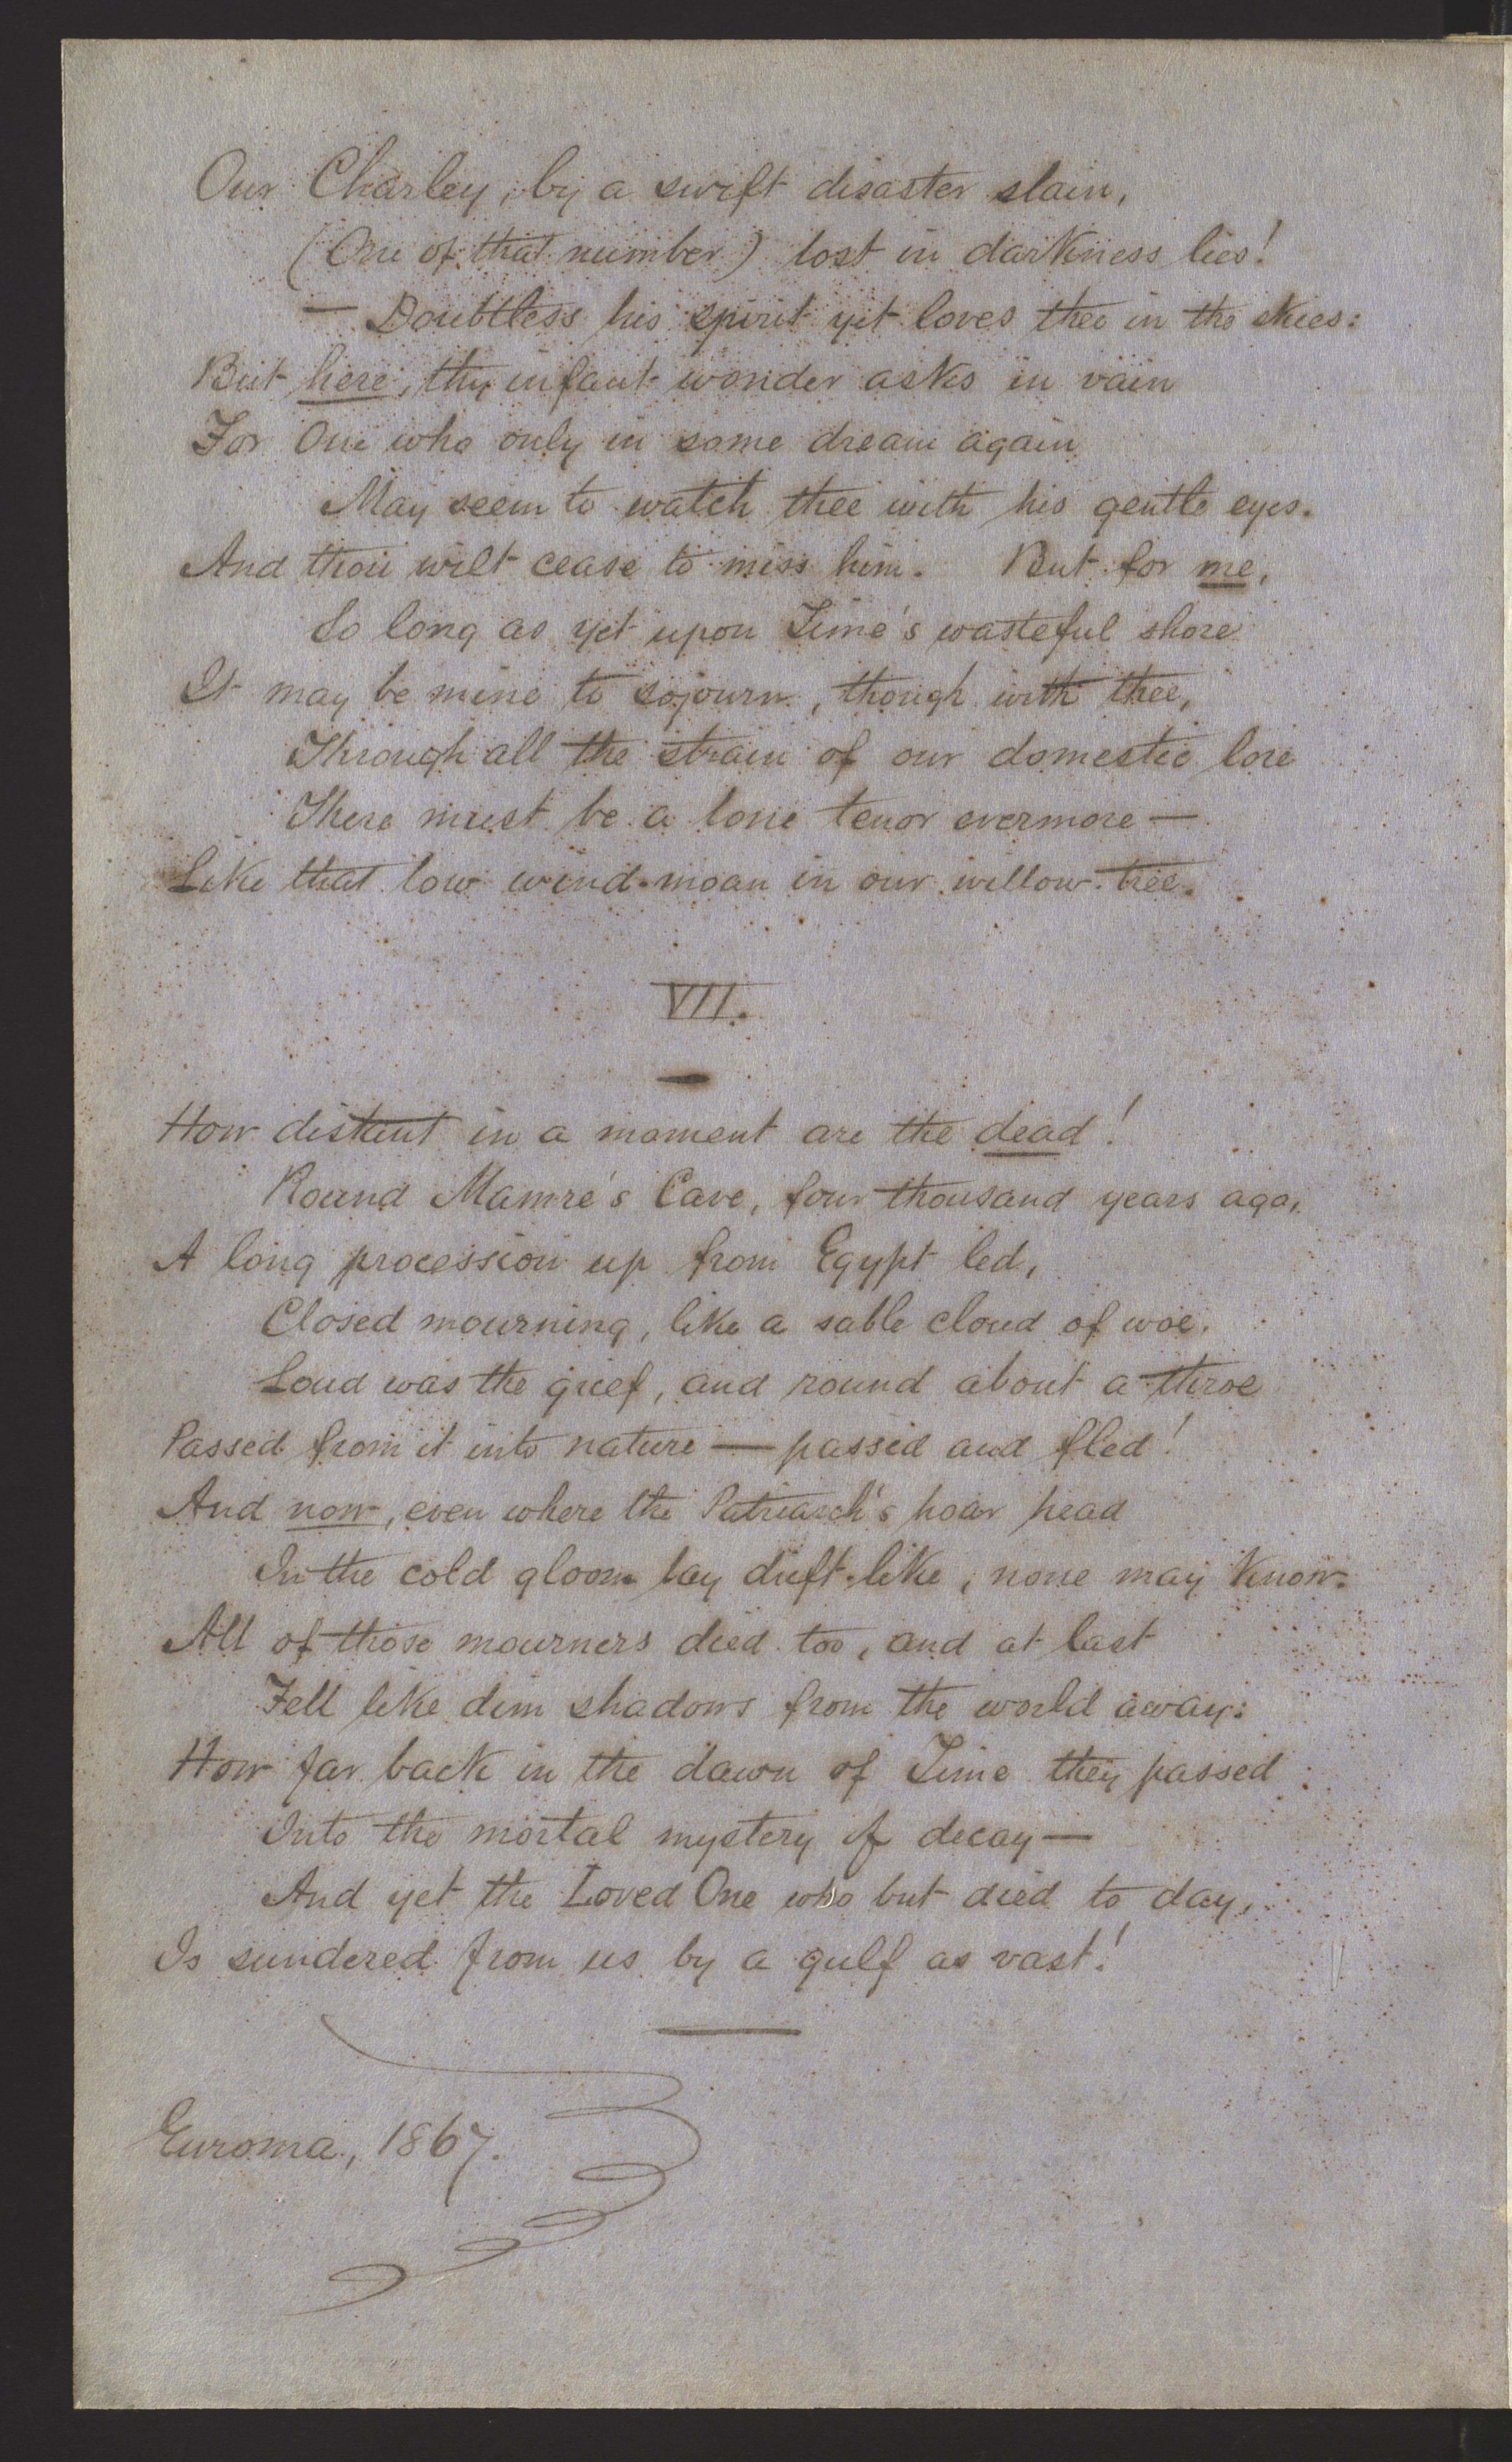 Our Charley, by a swift disaster slain,
(One of that number) lost in darkness lies!
— Doubtless his spirit yet loves thee in the skies:
But here, thy infant wonder asks in vain
For One who only in some dream again
May seem to watch thee with his gentle eyes.
And thou wilt cease to miss him. But for me,
So long as yet upon Time's wasteful shore
It may be mine to sojourn, though with thee,
Through all the strain of our domestic lore
There must be a lone tenor evermore —
Like that low wind-moan in our willow-tree.
VII.
How distant in a moment are the dead!
Round Mamre's Cave, four thousand years ago,
A long procession up from Egypt led,
Closed mourning, like a sable cloud of woe.
Loud was the grief, and round about a throe
Passed from it into nature — passed and fled!
And now, even where the Patriarch's hoar head
In the cold gloom lay drift-like, none may know.
All of those mourners died too, and at last
Fell like dim shadows from the world away:
How far back in the dawn of Time they passed
Into the mortal mystery of decay —
And yet the Loved One who but died to day,
Is sundered from us by a gulf as vast!
Euroma, 1867.